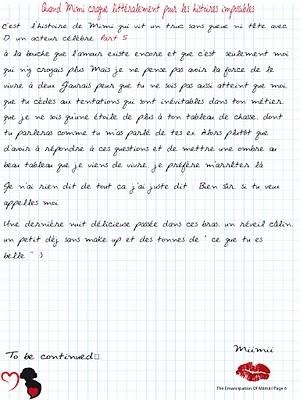 Quand Mimi croque littéralement pour les histoires impossibles
c'est l'histoire de Mimi qui vit un truc sans queue ni tête avec
D un acteur célèbre Part 5
à la bouche que l'amour existe encore et que c'est seulement moi
qui n'y croyais plus Mais je ne pense pas avoir la force de le
vivre à deux J'aurais peur que tu ne sois pas aussi atteint que moi,
que tu cèdes au tentations qui sont inévitables dans ton métier,
que je ne sois qu'une étoile de plus à ton tableau de chasse, dont
tu parleras comme tu m'as parlé de tes ex. Alors plutôt que
d'avoir à répondre à ces questions et de mettre une ombre au
beau tableau que je viens de vivre, je préfère m'arrêter là
Je n'ai rien dit de tout ca, j'ai juste dit : Bien sûr, si tu veux
appelles moi.
Une dernière nuit délicieuse passée dans ces bras, un réveil câlin,
un petit déj sans make up et des tonnes de " ce que tu es
belle " :)
To be continued
Miimii
The Emancipation Of Miimii I Page 6